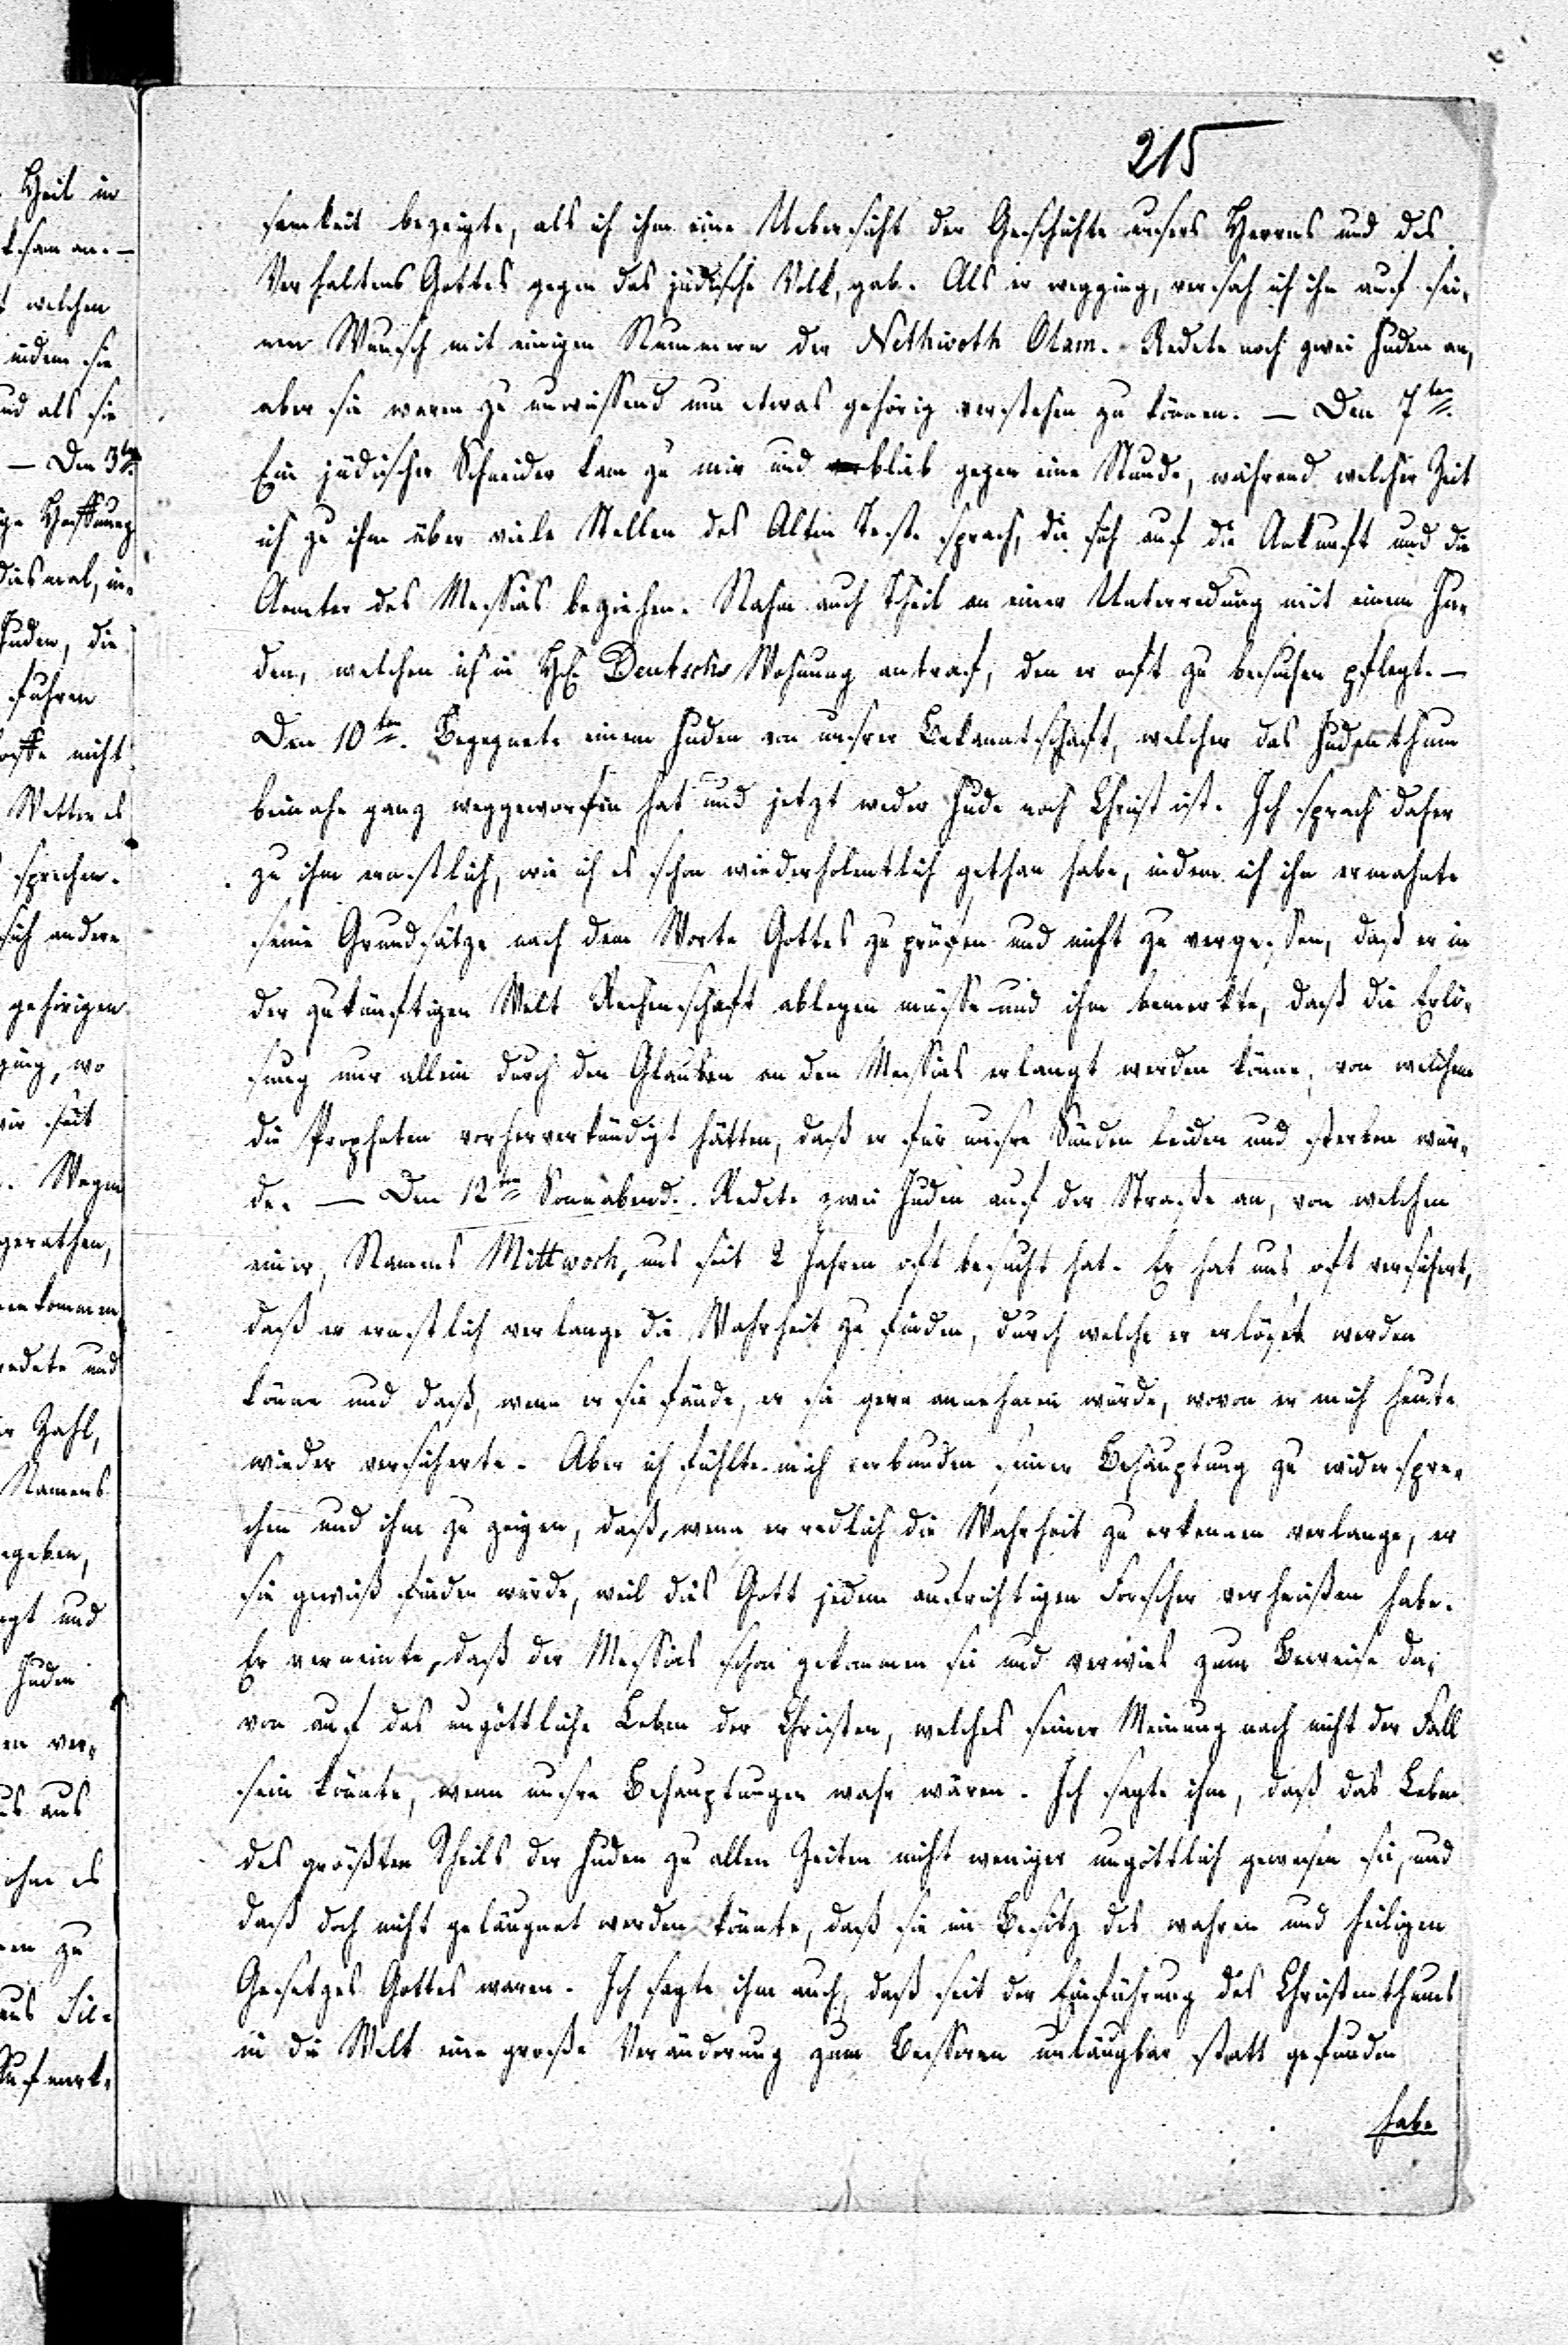 215
samkeit bezeigte, als ich ihm eine Uebersicht der Geschichte unsers Herrns und des
Verhaltens Gottes gegen das jüdische Volk, gab. Als er wegging, versah ich ihn auf sei-
nen Wunsch mit einigen Nummern der Nethivoth Olam. Redete noch zwei Juden an,
aber sie waren zu unwissend um etwas gehörig verstehen zu können. — Den 7ten.
Ein jüdischer Schneider kam zu mir und blieb gegen eine Stunde, während welcher Zeit
ich zu ihm über viele Stellen des Alten Test. sprach, die sich auf die Ankunft und die
Aemter des Messias beziehen. Nahm auch Theil an einer Unterredung mit einem Ju-
den, welchen ich in H. Deutschs Wohnung antraf, den er oft zu besuchen pflegt. —
Den 10ten. Begegnete einem Juden von unsrer Bekanntschaft, welcher das Judenthum
beinahe ganz weggeworfen hat und jetzt weder Jude noch Christ ist. Ich sprach daher
zu ihm ernstlich, wie ich es schon wiederholentlich gethan habe, indem ich ihn ermahnte
seine Grundsätze nach dem Worte Gottes zu prüfen und nicht zu vergessen, daß er in
der zukünftigen Welt Rechenschaft ablegen müsse und ihm bemerkte, daß die Erlö-
sung nur allein durch den Glauben an den Messias erlangt werden könne, von welchem
die Propheten vorherverkündigt hätten, daß er für unsre Sünden leiden und sterben wür-
de. — Den 12ten Sonnabend. Redete zwei Juden auf der Straße an, von welchen
einer, Namens Mittwoch, uns seit 2 Jahren oft besucht hat. Er hat uns oft versichert,
daß er ernstlich verlange die Wahrheit zu finden, durch welche er erlöset werden
könne und daß, wenn er sie fände, er sie gern annehmen würde, wovon er mich heute
wieder versicherte. Aber ich fühlte mich verbunden seiner Behauptung zu widerspre-
chen und ihm zu zeigen, daß, wenn er redlich die Wahrheit zu erkennen verlange, er
sie gewiß finden würde, weil dies Gott jedem aufrichtigen Forscher verheißen habe.
Er verneinte, daß der Messias schon gekommen sei und verwies zum Beweise da-
von auf das ungöttliche Leben der Christen, welches seiner Meinung nach nicht der Fall
sein könnte, wenn unsre Behauptungen wahr wären. Ich sagte ihm, daß das Leben
des größten Theils der Juden zu allen Zeiten nicht weniger ungöttlich gewesen sei, und
daß doch nicht geläugnet werden könnte, daß sie im Besitz des wahren und heiligen
Gesetzes Gottes waren. Ich sagte ihm auch, daß seit der Einführung des Christenthums
in die Welt eine große Veränderung zum Besseren unläugbar statt gefunden
habe
Heil in
ksam an. —
welchen
indem sie
und als sie
— Den 3ten
ge Hoffnung
diesmal, in-
Juden, die
fuhren
offe nicht
Wetter es
sprechen.
sich andere
gehörigen
ging, wo
wir seit
. Wegen
gerathen,
en kommen
redete und
r Zahl,
Namens
egeben,
egt und
Juden
en ver-
us aus
ohne es
en zu
aus Sil-
Aufmerk-